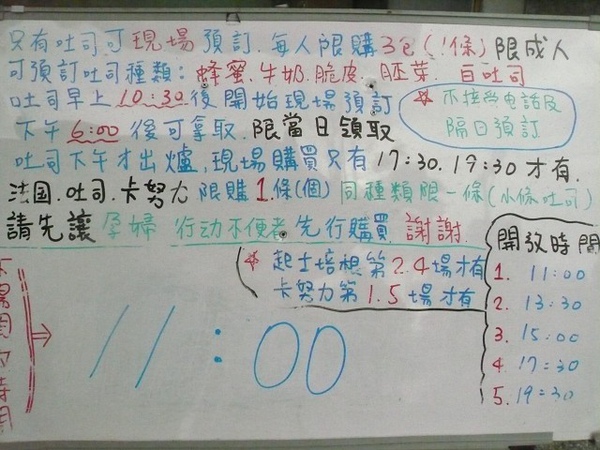 只有吐司可現場預訂.每人限購3包(1條)限成人
可預訂吐司種類:蜂蜜.牛奶.脆皮.胚芽.白吐司
吐司早上10:30後開始現場預訂
下午6:00後可拿取.限當日領取
*不接受電話及
隔日預訂
吐司下午才出爐,現場購買只有17:30.19:30才有.
法国.吐司.卡努力限購1條(個)同種類限一條(小條吐司)
請先讓孕婦 行动不便者先行購買 謝謝.
*起士培根第2.4場才有
卡努力第1.5場才有
開放時間
1. 11:00
2. 13:30
3. 15:00
4. 17:30
5. 19:30
11:00